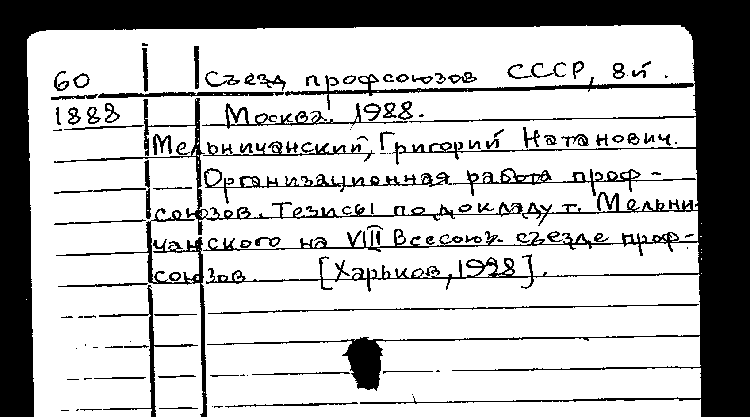 60 Съезд профсоюзов СССР, 8й.
1888 Москва. 1928.
Мельничанский, Григорий Натанович.
Организационная работа проф-
союзов. Тезисы по докладу т. Мельни-
чанского на VIII Всесоюз. съезде проф-
союзов. [Харьков, 1928].